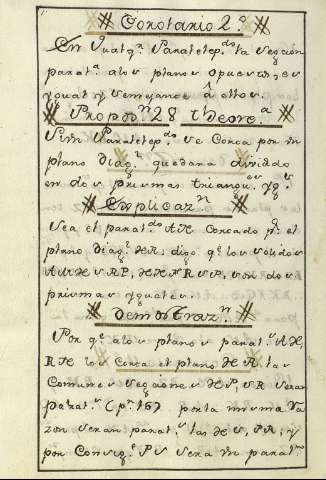 Corolario 2.º
En qualqr. Paralelep.do la secçion
paral.a a los planos opuestos, es
ygual y semejante â ellos.
Propos.n 28 theore.a
Si un Paralelep.do se corta por un
plano Diag.l quedarà dividido
en dos prismas triangu.s yg.s
Explicaz.n
Sea el paral.do AH cortado p.r el
plano diag.l
prismas yguales.
Demostraz.n
Por q.e a los planos paral.s
los corta el plano
comunes secçiones seran
paral.s (p.r 16) por la misma ra
zon seran paral.s las
por consig.e PS sera un paral.mo